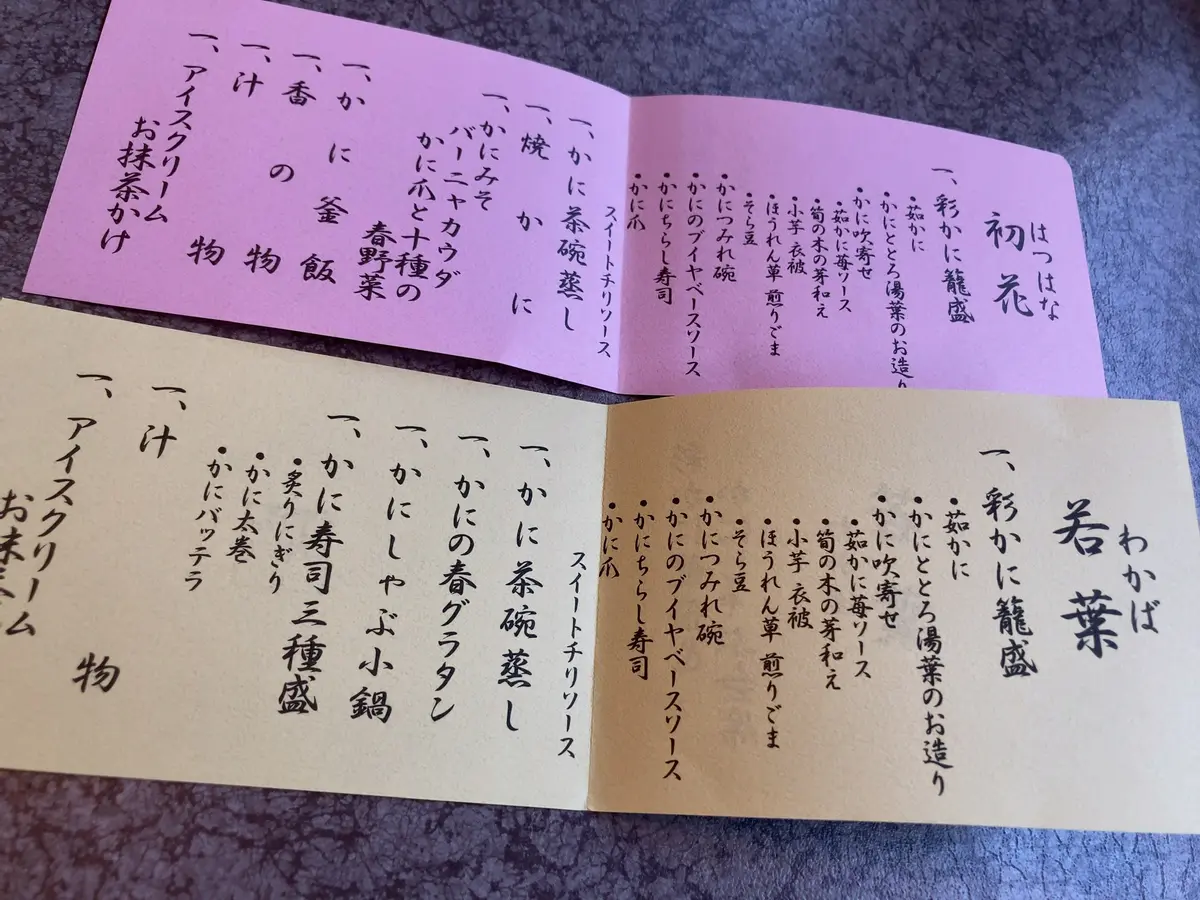 はつはな
初花
一、彩かに籠盛
・茹かに
・かにとろ湯葉のお造り
・かに吹寄せ
茹かに苺ソース
・筍の木の芽和え
・小芋 衣被
・ほうれん草 煎りごま
・そら豆
・かにつみれ碗
・かにのブイヤベースソース
・かにちらし寿司
・かに爪
スイートチリソース
一、かに茶碗蒸し
一、焼かに
一、かにみそ
バーニャカウダ
かに爪と十種の
春野菜
一、かに釜飯
一、香の物
一、汁物
一、アイスクリーム
お抹茶かけ
わかば
若葉
一、彩かに籠盛
・茹かに
・かにとろ湯葉のお造り
・かに吹寄せ
・茹かに苺ソース
・筍の木の芽和え
・小芋 衣被
・ほうれん草 煎りごま
・そら豆
・かにつみれ碗
・かにのブイヤベースソース
・かにちらし寿司
・かに爪
スイートチリソース
一、かに茶碗蒸し
一、かにの春グラタン
一、かにしゃぶ小鍋
一、かに寿司三種盛
・炙りにぎり
・かに太巻
・かにバッテラ
一、汁物
一、アイスクリーム
お抹茶